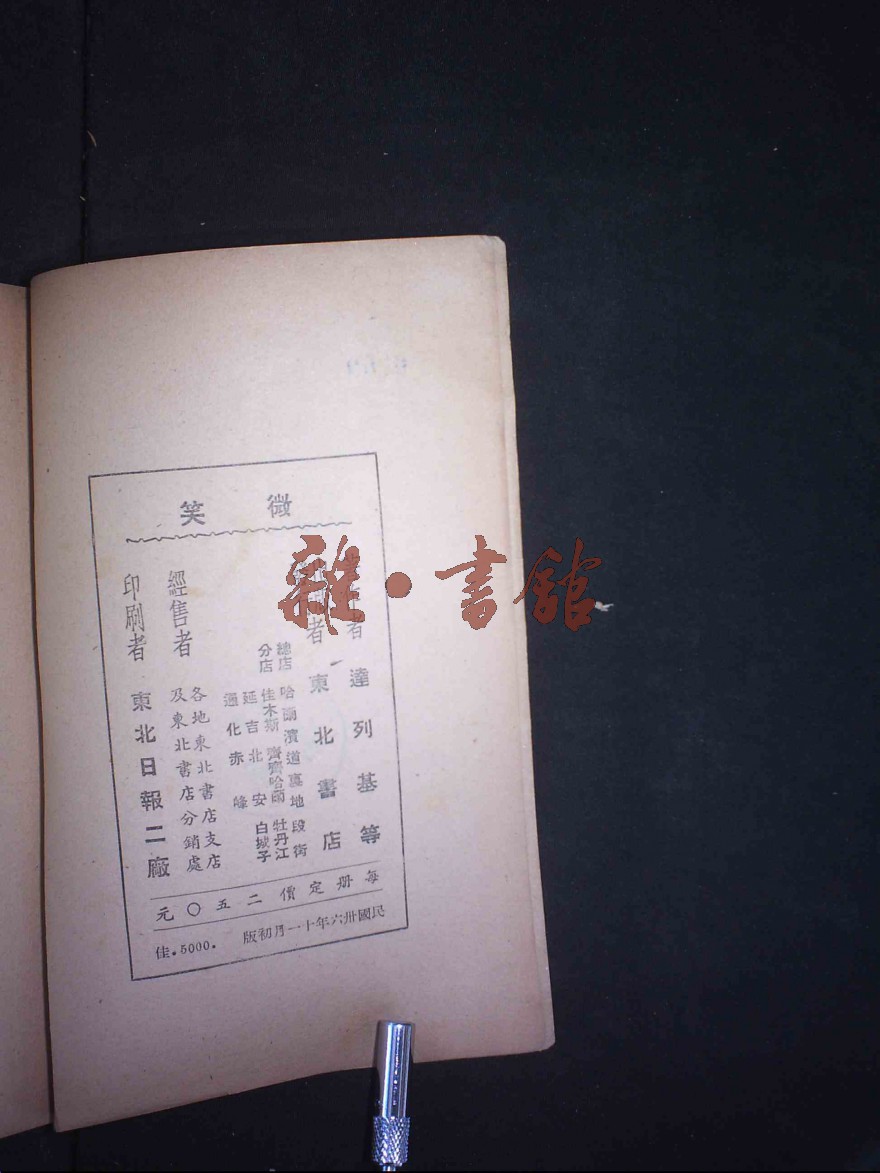 微笑
者 達列基等
者 東北書店
總店 哈爾濱道裏地段街
分店 佳木斯 齊齊哈爾 牡丹江
延吉 北安 白城子
通化 赤峰
經售者 各地東北書店支店
及東北書店分銷處
印刷者 東北日報二廠
每册定價二五〇元
民國卅六年十一月初版 .5000.佳
雜·書館